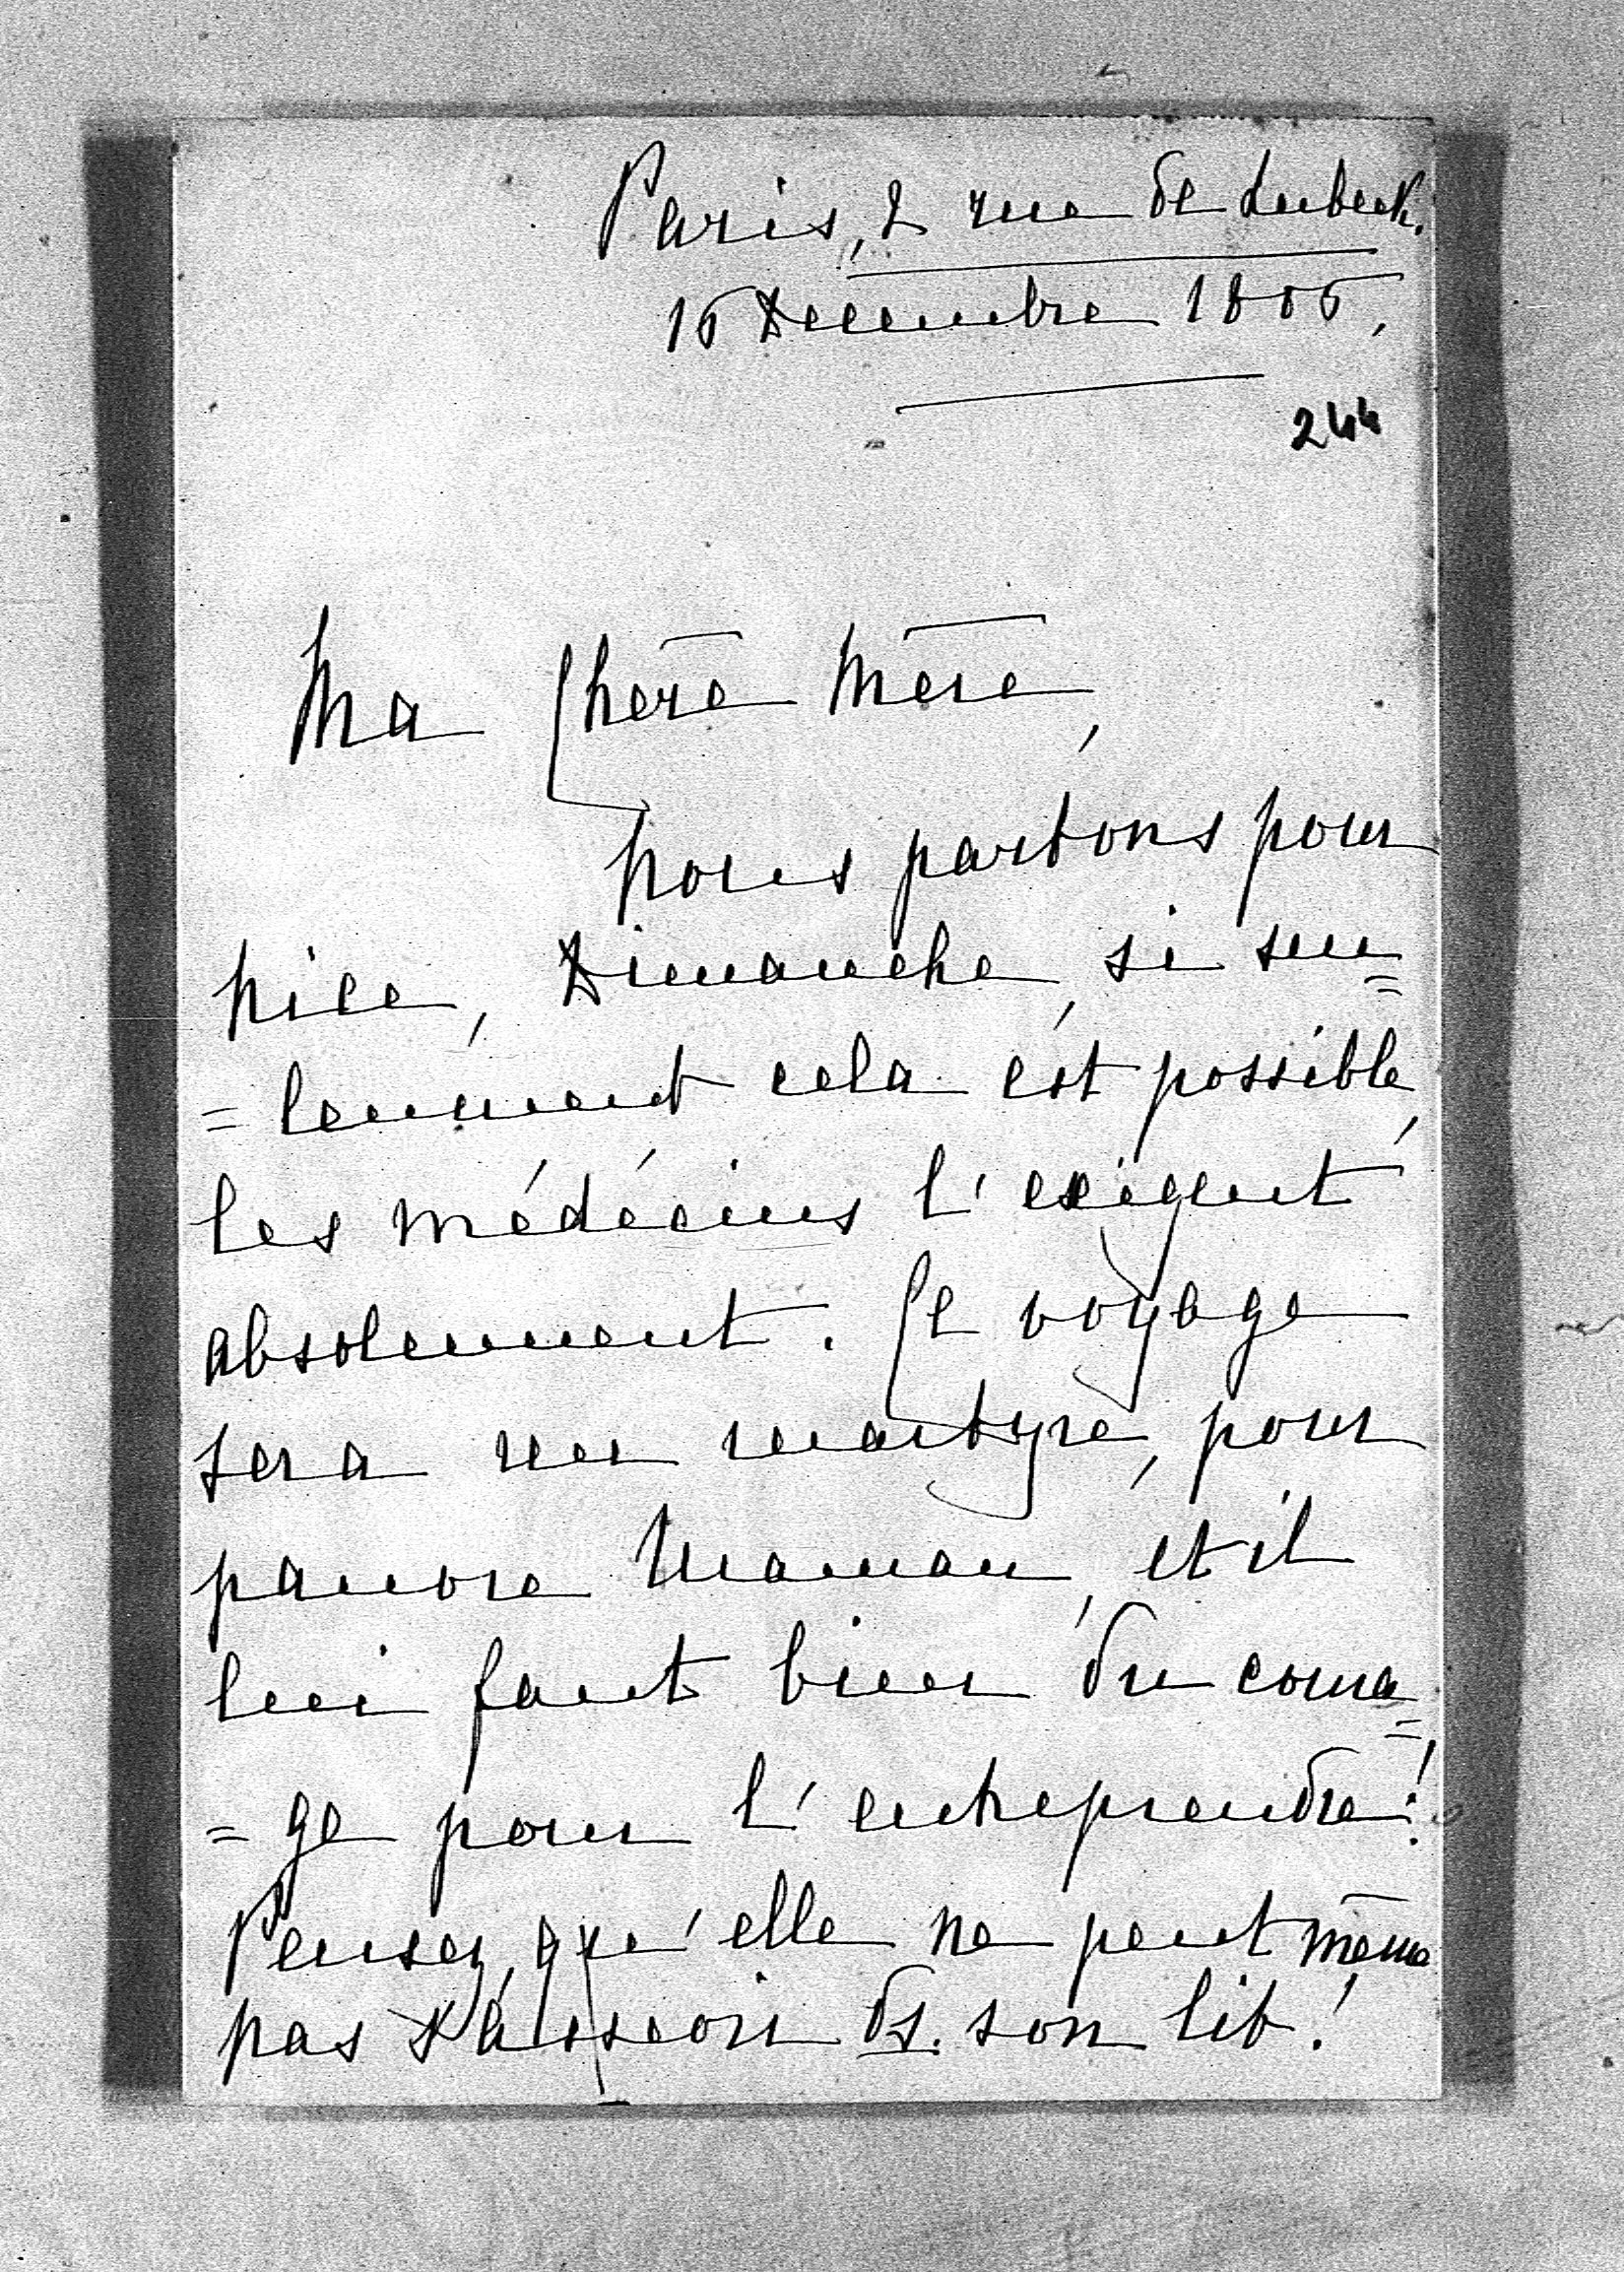 Paris, 2 rue de Lubeck.
16 Decembre 1886,
244
Ma Chère Mère,
Nous partons pour
Nice, Dimanche, si seu=
=lement cela est possible,
les médécins l'exigent
absolument. Ce voyage
sera un martyre, pour
pauvre Maman, et il
lui faut bien du coura=
=ge pour l'entreprendre!
Pensez, qu'elle ne peut même
pas s'asseoir ds. son lit!